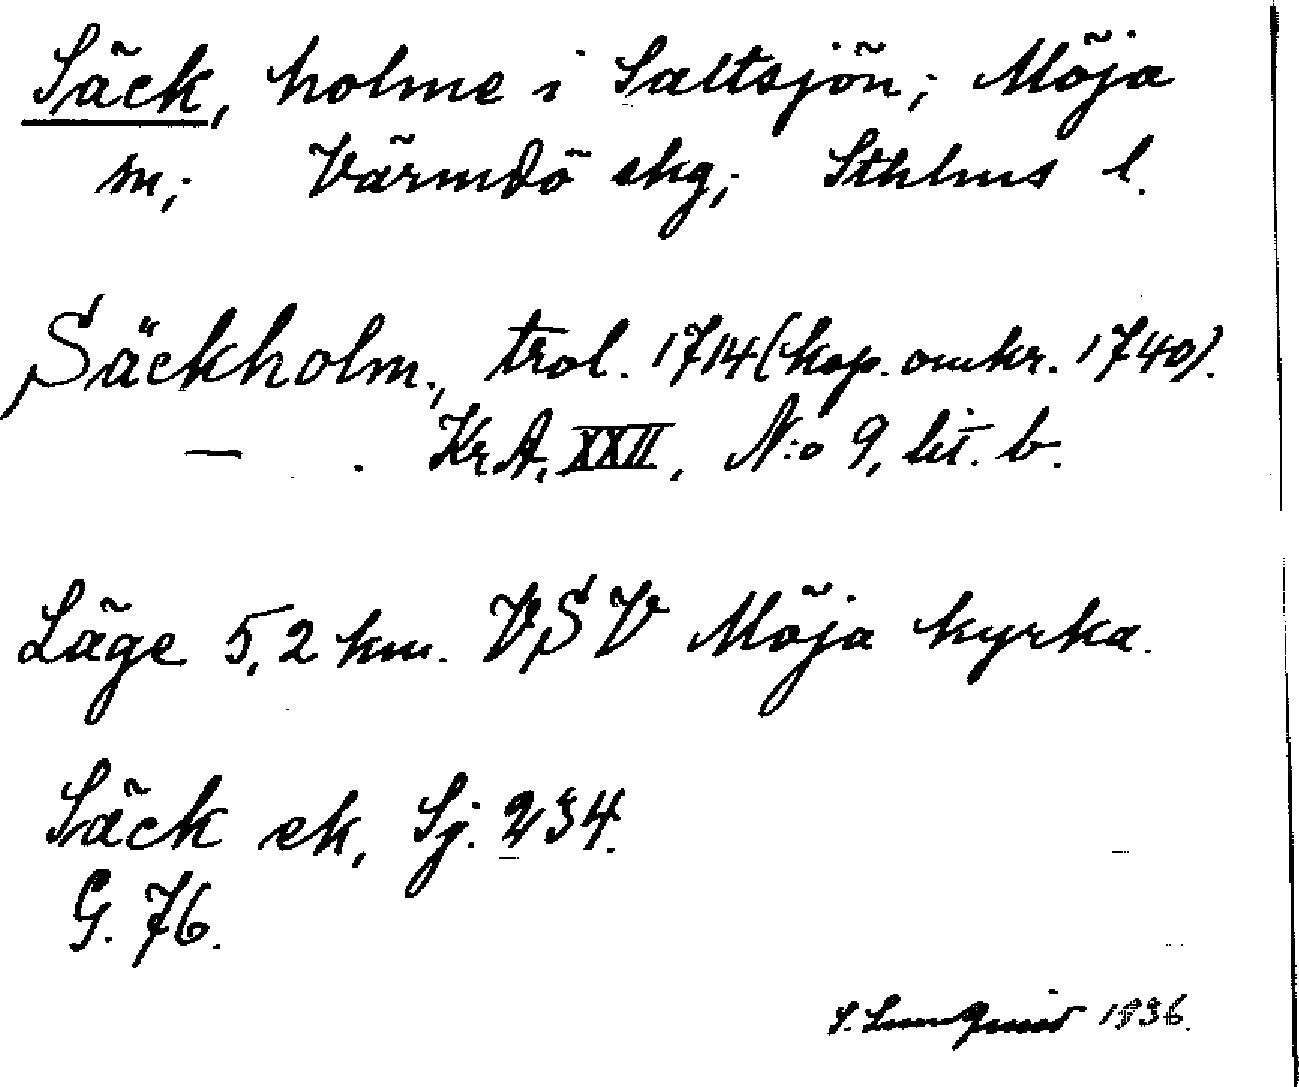 Säck, holme i Saltsjön; Möja
sn; Värmdö skg; Sthlms l.
Säckholm., trol. 1714 (kop. omkr. 1740).
— . KrA, XXII, N:o 9, lit. b.
Läge 5,2 km. VSV Möja kyrka.
Säck ek, Sj. 234.
G. 76.
1936.